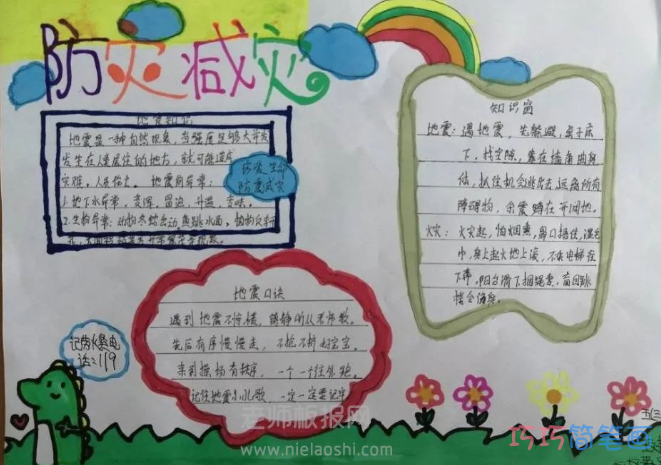 防灾减灾
地震知识
地震是一种自然现象,当强度足够大并
发生在人类居住的地方,就可能造成
灾难。人员伤亡。地震前异常:
1.地下水异常。变浑、冒泡、升温、变味。
2.生物异常:动物冬蛇出动,鱼跳水面,
珍爱生命
防震减灾
知识窗
地震:遇地震,先躲避,桌子床
下,找空隙,靠在墙角曲身
体,抓住机会逃出去,远离所有
障碍物,余震蹲在开阔地。
火灾:火灾起,怕烟熏,鼻口捂住,湿毛
巾,身上起火地上滚,不乘电梯往
下奔,阳台滑下捆绳索,盲目跳
楼会伤身。
地震口诀
遇到地震不慌张,
先后有序慢慢走,不抢不挤好宝宝,
来到操场有秩序,一个一个往外跑。
记住地震小儿歌,一定一定要记牢
记好火警电
话:119
老师板报网
www.nielaoshi.com
巧巧简笔画